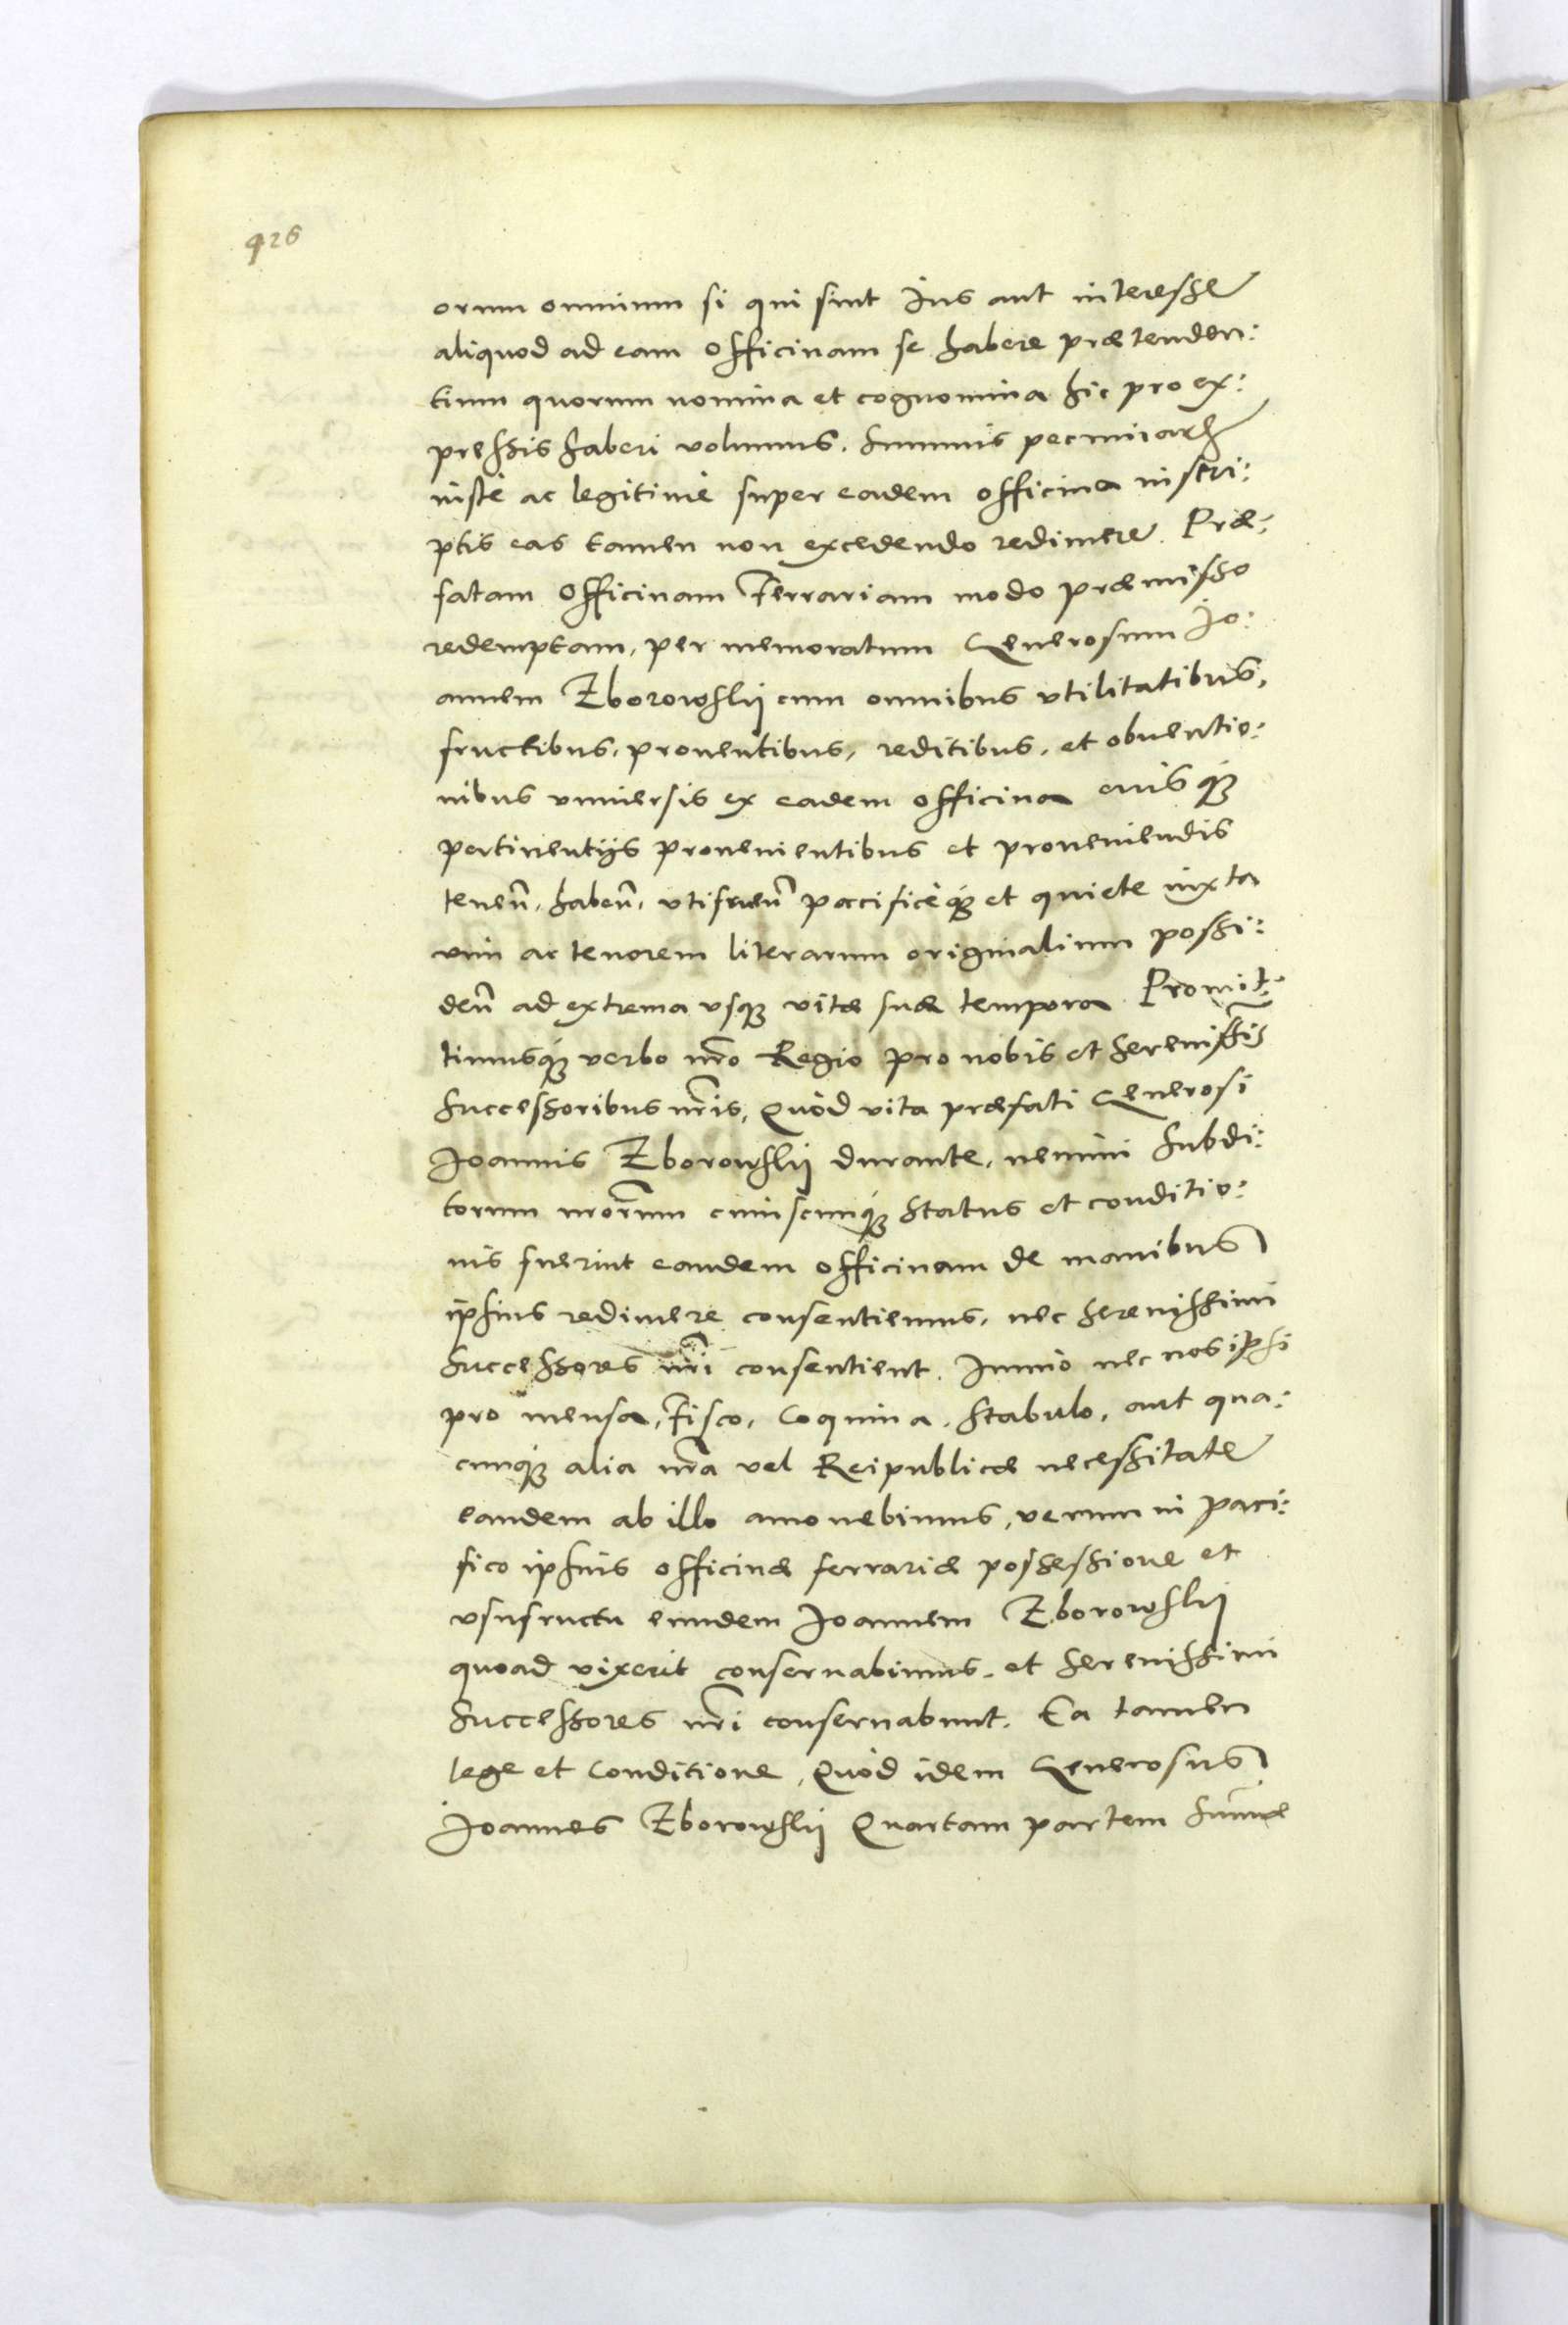 926
orum omnium si qui sint Ius aut interesse
aliquod ad eam Officinam se habere prætenden:
tium quorum nomina et cognomina hic pro ex:
pressis haberi volumus. Summis pecuniarȝ
iustè ac legitimè super eadem officina inscri:
ptis eas tamen non excedendo redimere. Præ:
fatam Officinam Ferrariam modo præmisso
redemptam, per memoratum Generosum Jo:
annem Zborowskij cum omnibus vtilitatibus,
fructibus, prouentibus, reditibus, et obuentio:
nibus vniuersis ex eadem officina eiusqȝ
pertinentijs prouenientibus et proueniendis
teneñ, habeñ, vtifrueñ pacificèqȝ et quiete iuxta
vim ac tenorem literarum originalium possi:
deñ ad extrema vsqȝ vitæ suæ tempora. Promit:
timusqȝ verbo nr̃o Regio pro nobis et Sereniss̃is
Successoribus nr̃is, Quòd vita præfati Generosi
Joannis Zborowskij durante, nemini Subdi:
torum nr̃orum cuiuscunqȝ Status et conditio:
nis fuerint eandem officinam de manibus
ipsius redimere consentiemus, nec Serenissimi
Successores nr̃i consentient. Immò nec nos ipsi
pro mensa, Fisco, Coquina, Stabulo, aut qua:
cunqȝ alia nr̃a vel Reipublicæ necessitate
eandem ab illo amouebimus, verum in paci:
fico ipsius officinæ ferrariæ possessione et
vsufructu eundem Joannem Zborowskij
quoad vixerit conseruabimus, et Serenissimi
Successores nr̃i conseruabunt. Ea tamen
lege et Conditione, Quòd idem Generosus
Joannes Zborowskij Quartam partem Sum̃æ